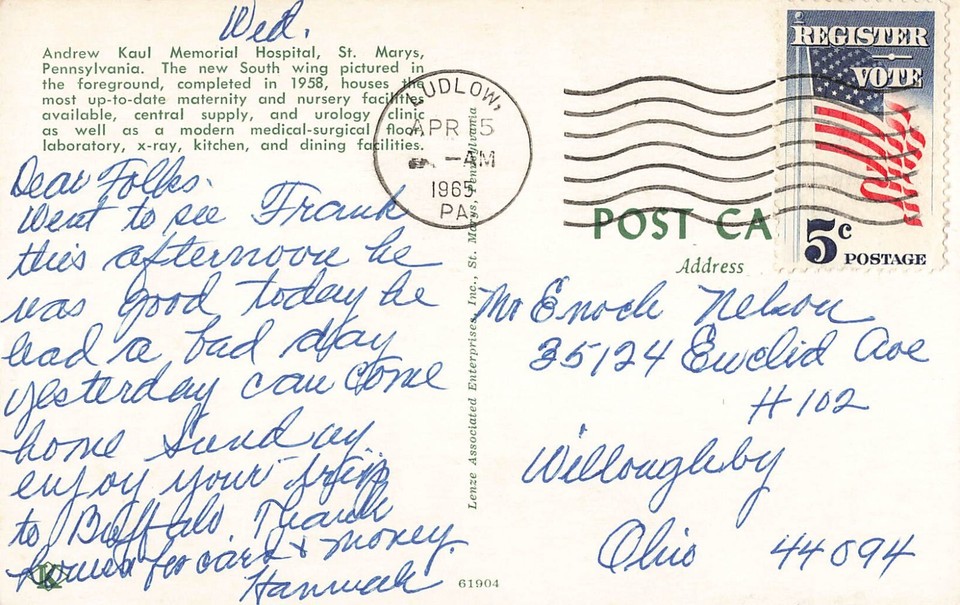 Wed.
Andrew Kaul Memorial Hospital, St. Marys,
Pennsylvania. The new South wing pictured in
the foreground, completed in 1958, houses the
most up-to-date maternity and nursery facilities
available, central supply, and urology clinic
as well as a modern medical-surgical floor
laboratory, x-ray, kitchen, and dining facilities.
Dear Folks.
Went to see Frank
this afternoon he
was good today he
had a bad day
yesterday can come
home Sunday
enjoy your trip
to Buffalo Thank
for card & money.
Hannah
Lenze Associated Enterprises, Inc., St. Marys, Pennsylvania
61904
LUDLOW,
APR 15
AM
1965
PA
REGISTER
VOTE
5c POSTAGE
POST CA
Address
Mr Enoch Nelson
35124 Euclid Ave
H 102
Willoughby
Ohio 44094